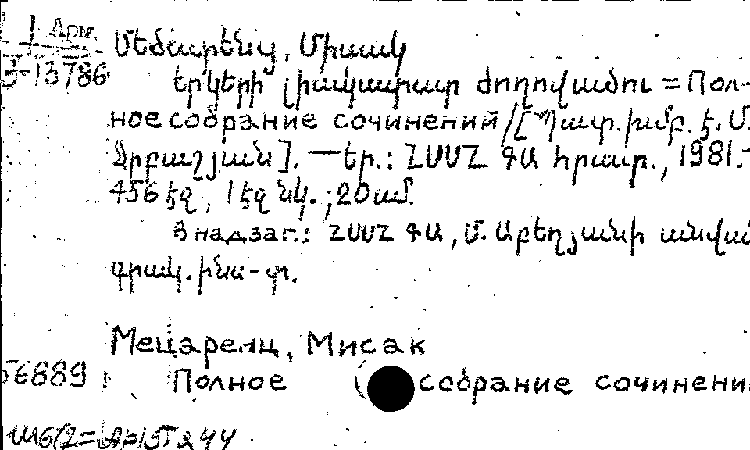 1 Арм.
3-13786
Մեծարենց, Միսակ
Երկերի լիակատար ժողովածու = Пол-
ное собрание сочинений / [Պատ. խմբ. է. Մ.
Ջրբաշյան]. — Եր.: ՀՍՍՀ ԳԱ հրատ., 1981.-
456 էջ, 1 էջ նկ.; 20 սմ.
В надзаг.: ՀՍՍՀ ԳԱ, Մ. Աբեղյանի անվան
գրակ. ինս-տ.
Мецаренц, Мисак
56889
Полное собрание сочинени